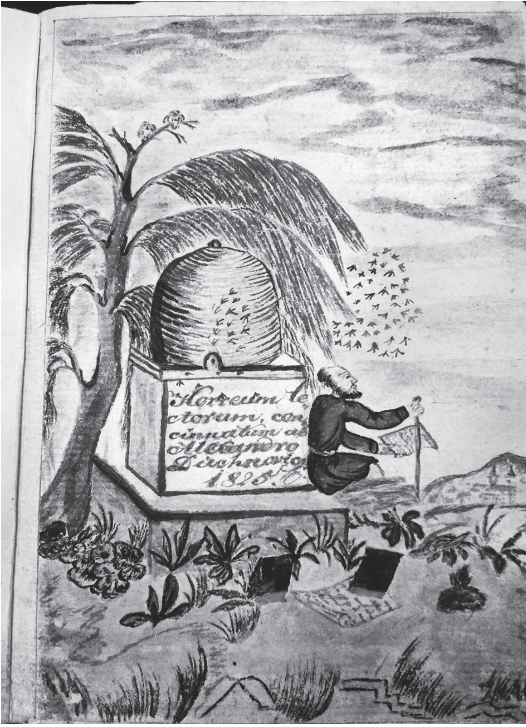 Horreum le
ctorum, con
cinnatum ab
Alexandro
Duchnovics
1825.